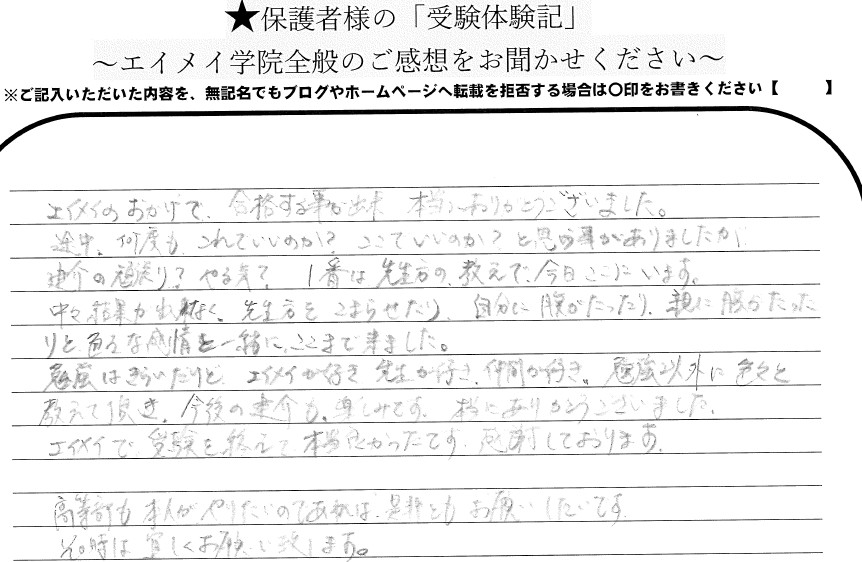 ★保護者様の「受験体験記」
～エイメイ学院全般のご感想をお聞かせください～
※ご記入いただいた内容を、無記名でもブログやホームページへ転載を拒否する場合は〇印をお書きください【　　　】
エイメイのおかげで、合格する事が出来 本当にありがとうございました。
途中、何度も、これでいいのか? ここでいいのか? と思う事がありましたが
建介の頑張り? やる気? 1番は先生方の、教えで、今日ここにいます。
中々結果が出なく、先生方をこまらせたり、自分に腹がたったり、親に腹がたった
りと色々な感情と一緒に、ここまで来ました。
勉強はきらいだけど、エイメイが好き 先生が好き、仲間が好き、勉強以外に色々と
教えて頂き、今後の建介も、楽しみです。本当にありがとうございました。
エイメイで、受験を終えて本当良かったです。感謝しております。
高等部も本人がやりたいのであれば、是非ともお願いしたいです。
その時は宜しくお願い致します。